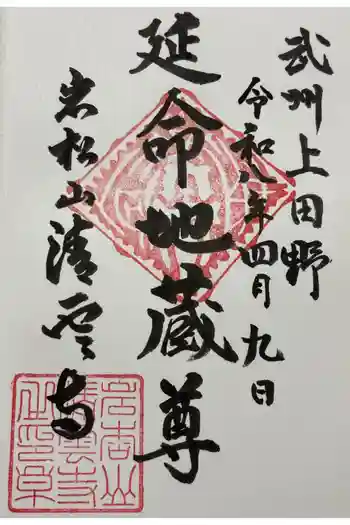 武州上田野
令和八年四月九日
延命地蔵尊
岩松山清雲寺